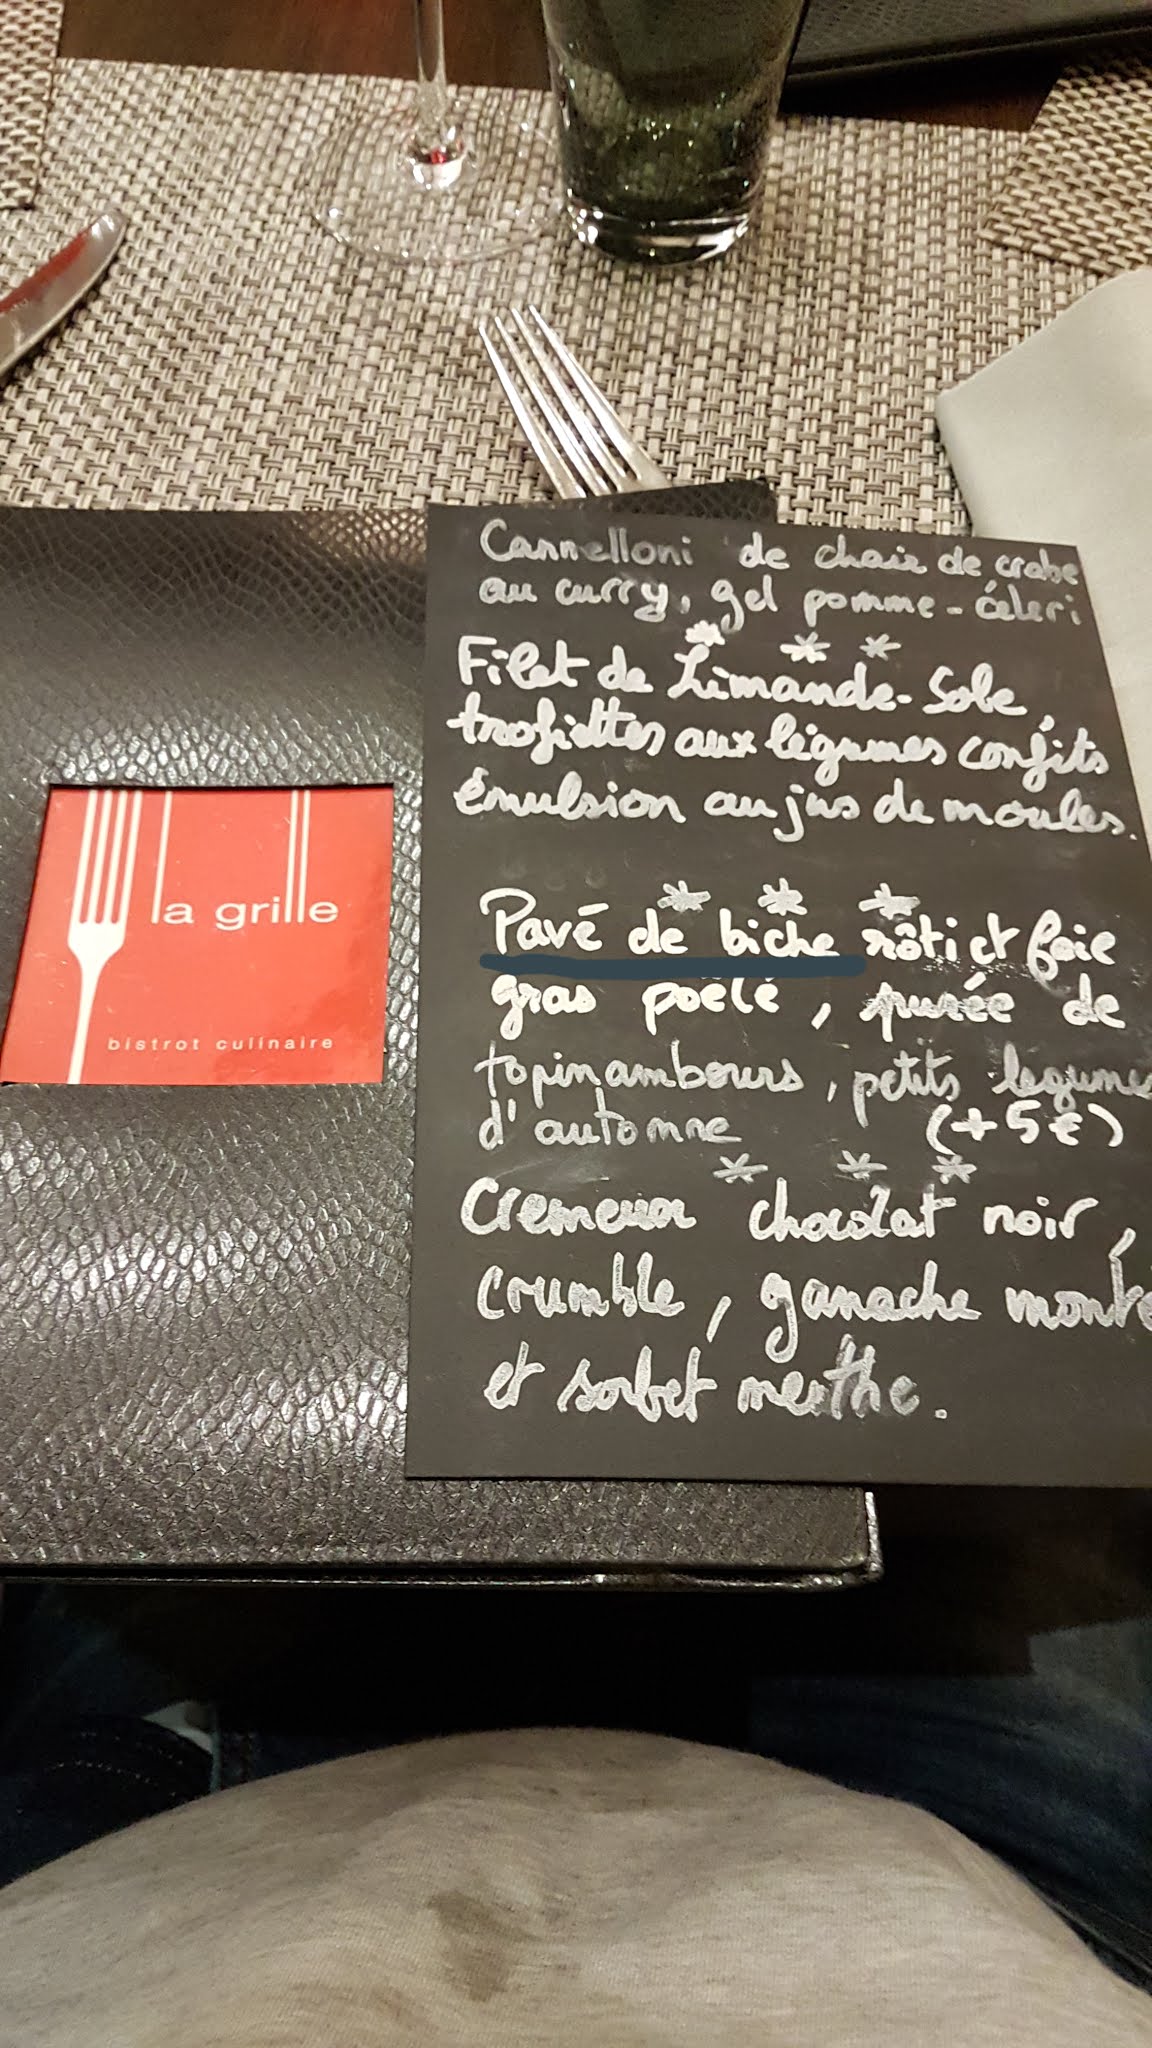 la grille
bistrot culinaire
Cannelloni de chair de crabe
au curry, gel pomme-céleri
Filet de Limande-Sole,
trofiettes aux légumes confits
émulsion au jus de moules.
Pavé de biche rôti et foie
gras poêlé, purée de
topinambours, petits légumes
d'automne (+5€)
Cremeux chocolat noir,
crumble, ganache monté
et sorbet menthe.